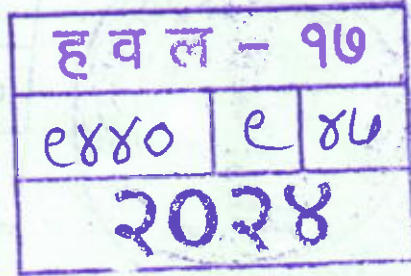 ह व ल - १७
९४४० ९ ४७
२०२४